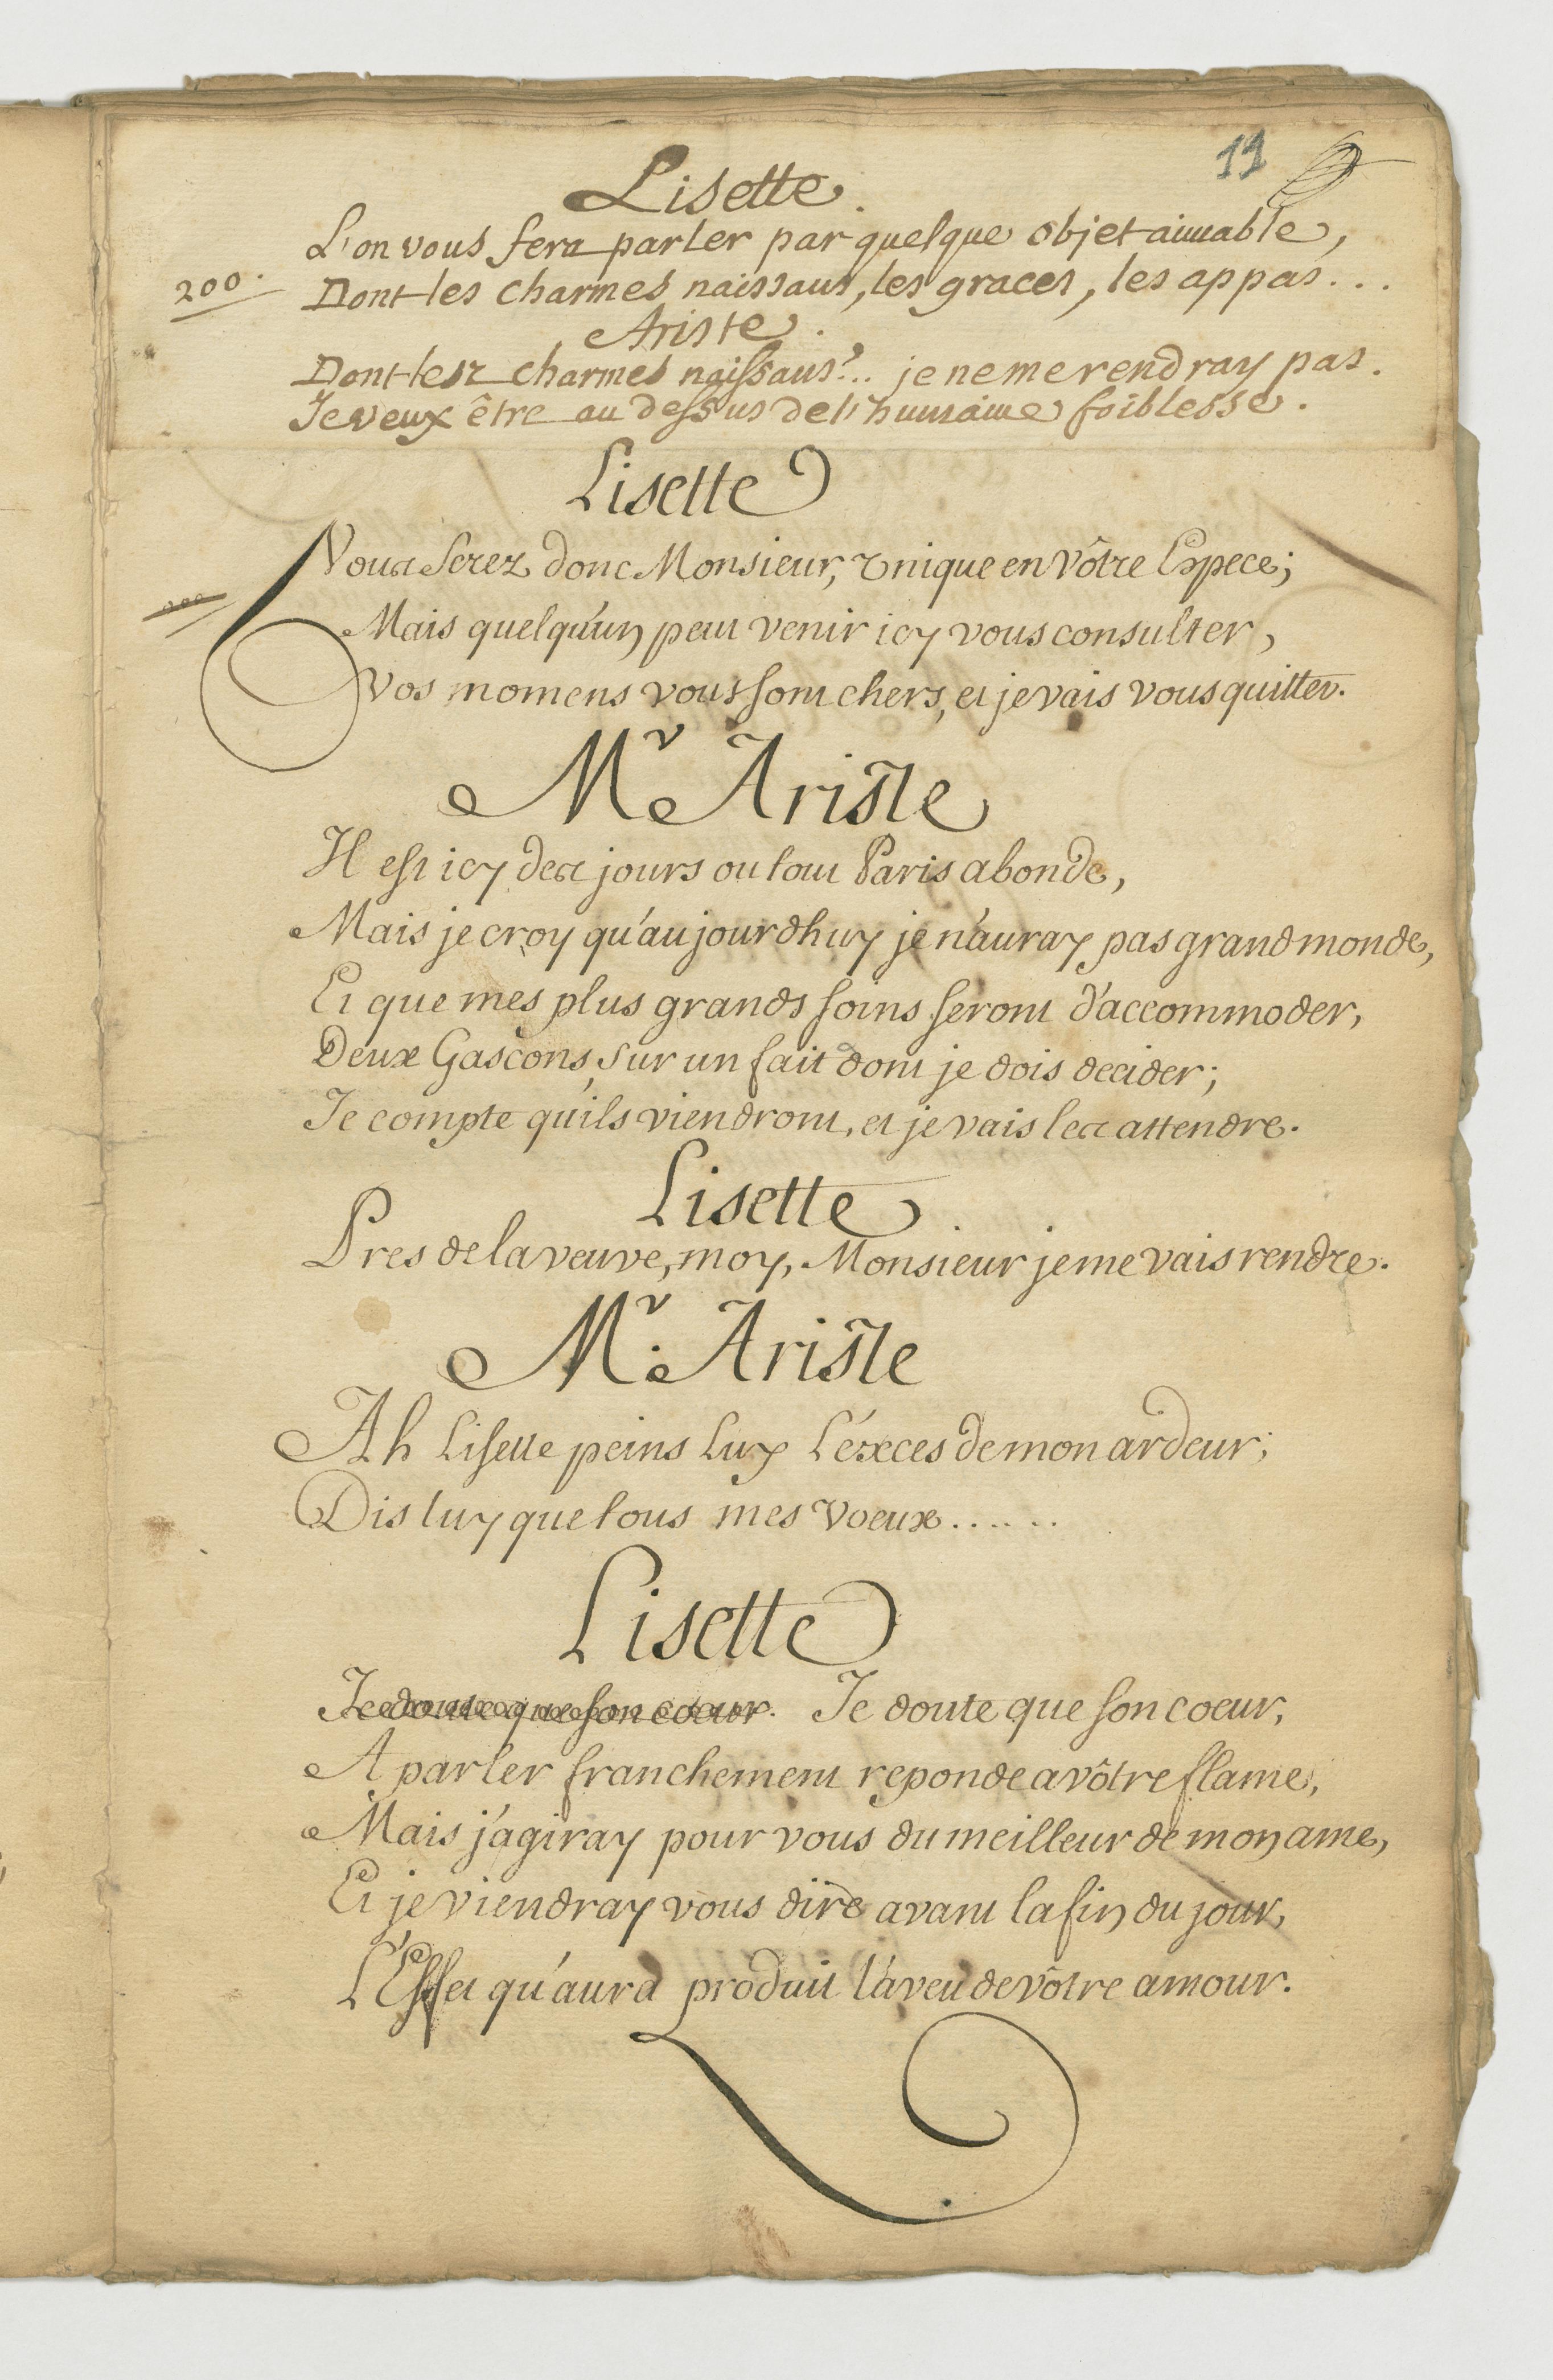 11
Lisette.
L'on vous fera parler par quelque objet aimable,
200.
Dont les charmes naissans, les graces, les appas...
Ariste.
Dont les charmes naissans?.. je ne me rendray pas.
Je veux être au dessus de l'humaine foiblesse.
Lisette
Vous serez donc Monsieur, Unique en vôtre Espece;
200
Mais quelqu'un peut venir icy vous consulter,
Vos momens vous sont chers, et je vais vous quitter.
Mr Ariste
Il est icy des jours ou tout Paris abonde,
Mais je croy qu'aujourdhuy je n'auray pas grand monde,
Et que mes plus grands soins seront d'accommoder,
Deux Gascons, sur un fait dont je dois decider;
Je compte qu'ils viendront, et je vais les attendre.
Lisette.
Pres de la veuve, moy, Monsieur je me vais rendre.
Mr. Ariste
Ah Lisette peins luy l'éxces de mon ardeur;
Dis luy que tous mes voeux......
Lisette
Je doute que son coeur. Je doute que son coeur,
A parler franchement reponde a vôtre flame,
Mais j'agiray pour vous du meilleur de mon ame,
Et je viendray vous dire avant la fin du jour,
L'Effet qu'aura produit l'aveu de vôtre amour.